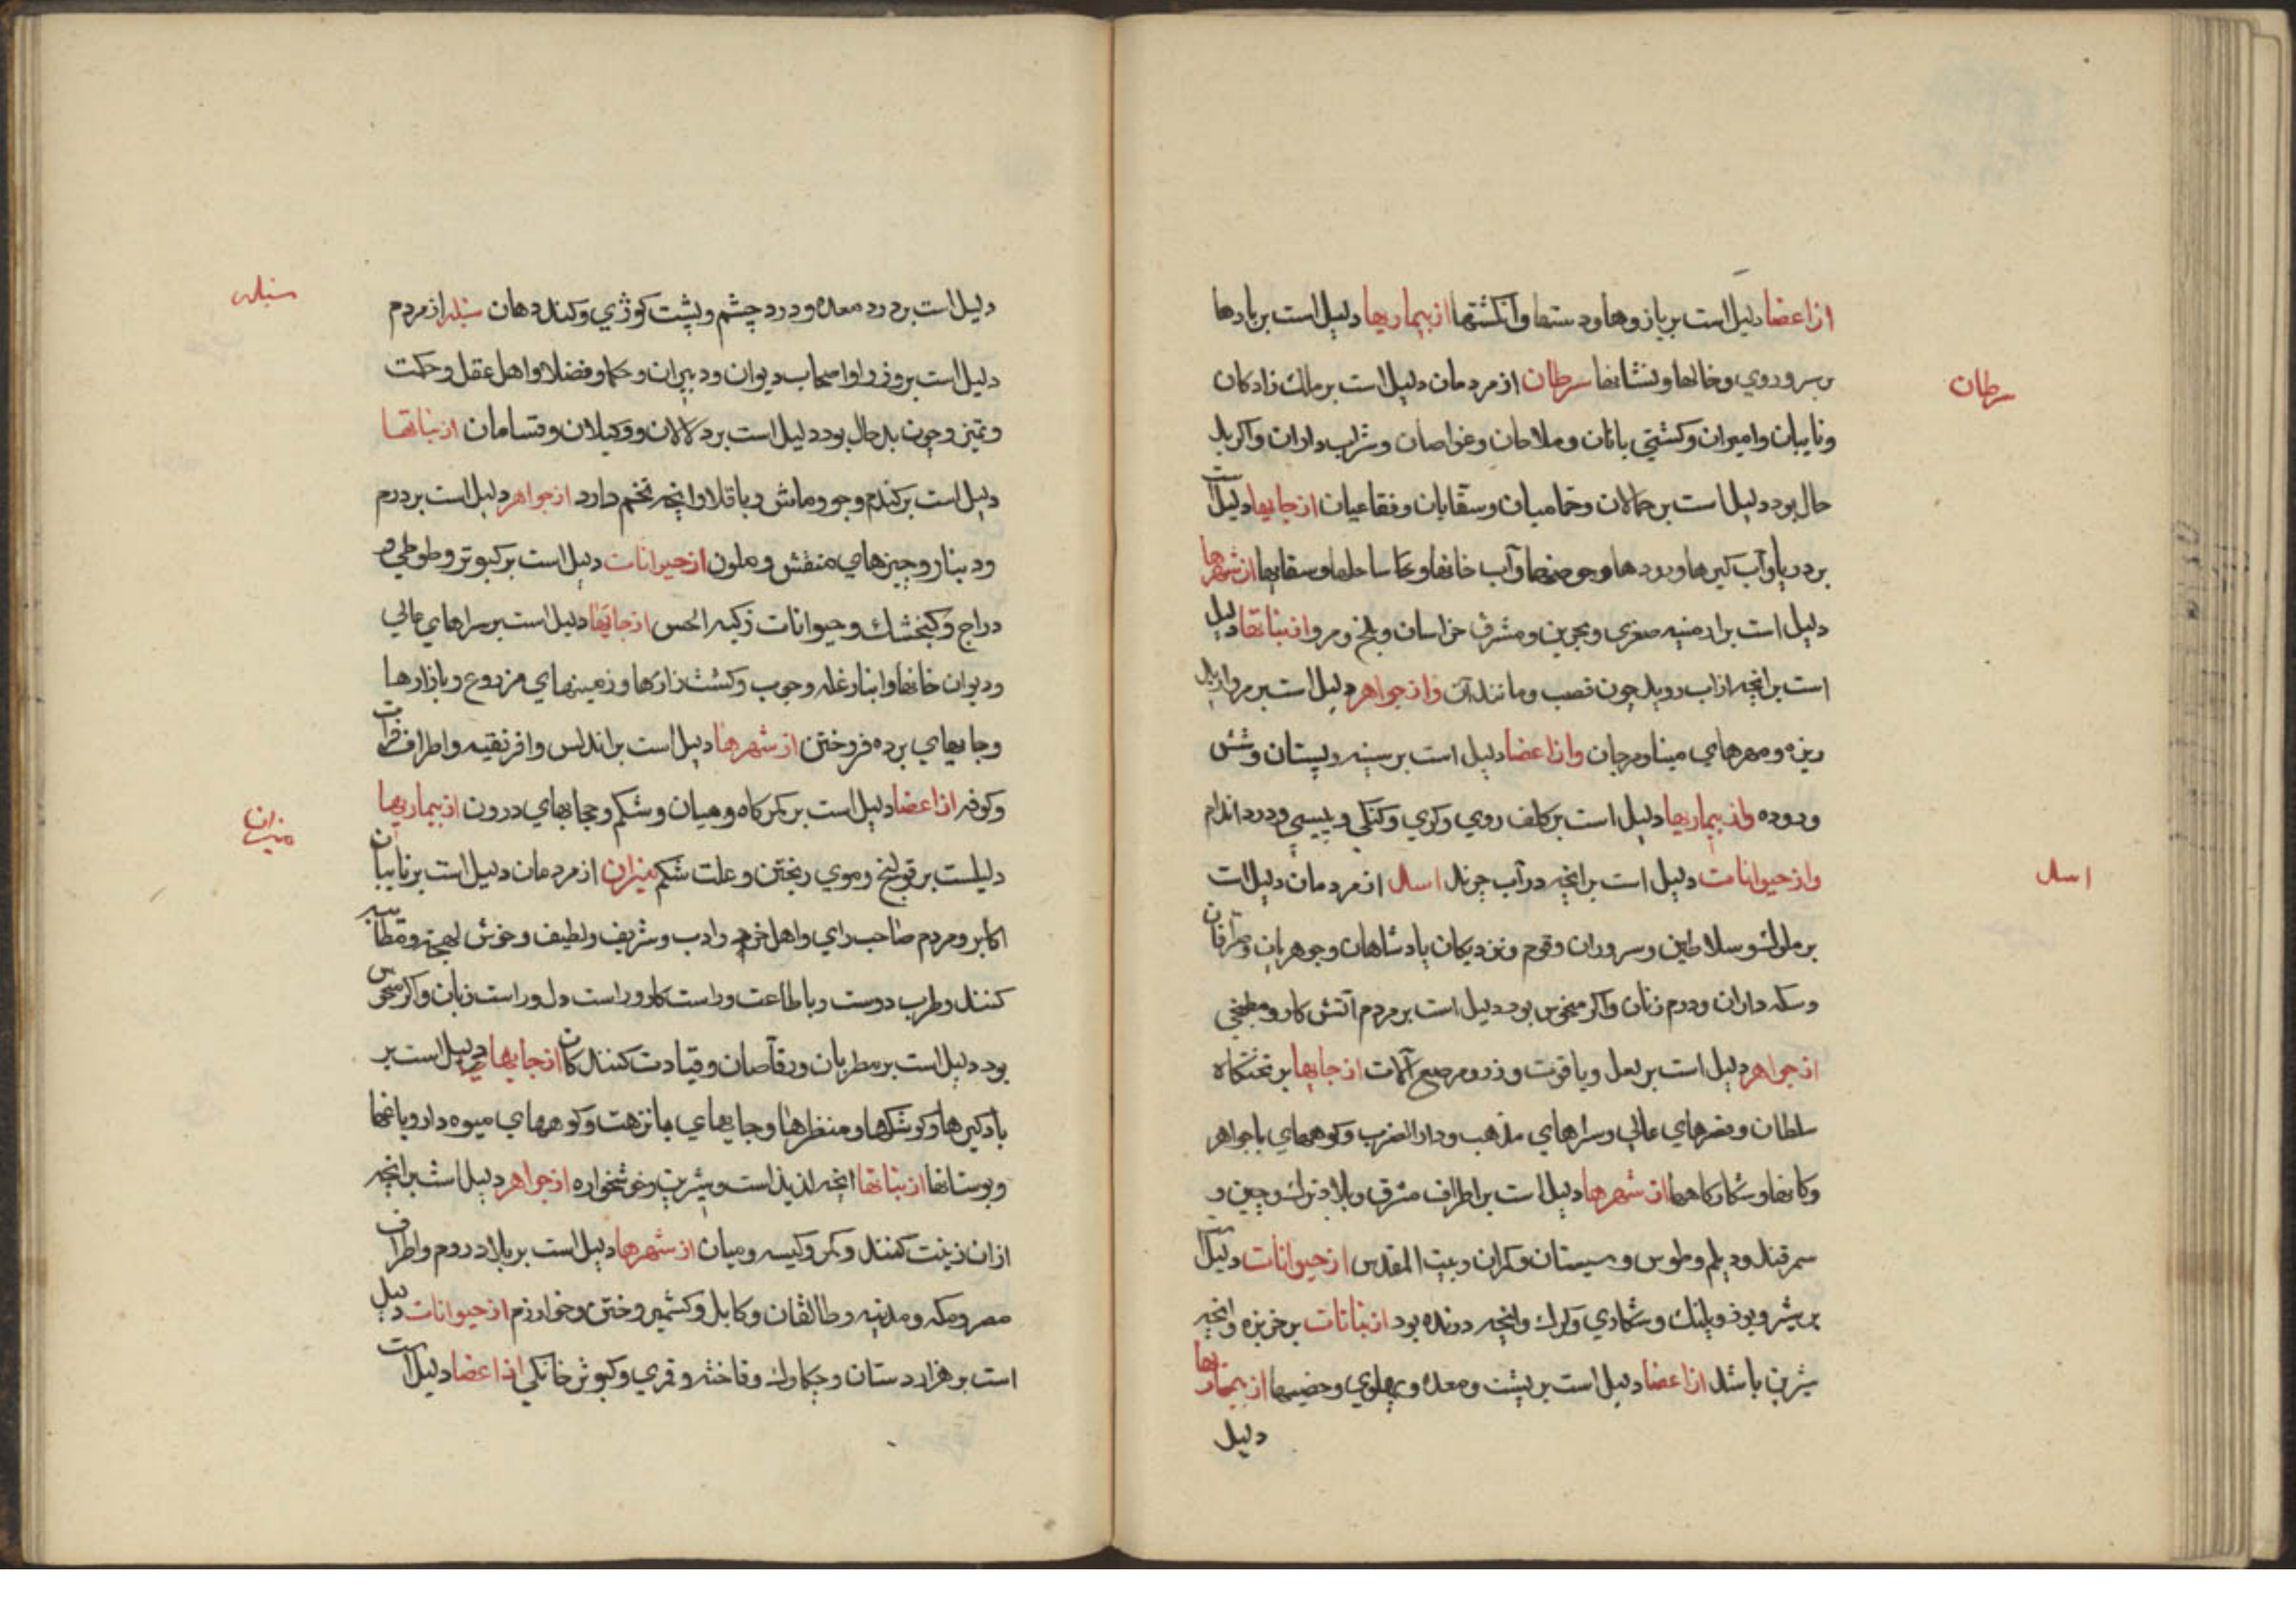 از اعضا دلیل است بر بازوها و دستها و انگشتها از بیماریها دلیل است بر بادها
بر سر و روی و خالها و نشانها سرطان از مردمان دلیل است بر ملك زادکان
سرطان
و نایبان و امیران و کشتی بانان و ملاحان و غواصان و شراب داران و اکر بد
حال بود دلیل است بر حمالان و حمامیان و سقایان و فقاعیان از جایها دلیل است
بر دریا و آب کیرها و رودها و حوضها و آب خانها و ساحلها و سقایها از شهرها
دلیل است بر ارمنیه صغری و بحرین و مشرق خراسان و بلخ و مرو از نباتها دلیل
است بر انچه از اب روید چون قصب و مانند آن و از جواهر دلیل است بر مروارید
ریزه و مهرهای مینا و مرجان و از اعضا دلیل است بر سینه و پستان و شش
و روده و از بیماریها دلیل است بر کلف روی و کری و کنکی و پیسی و درد اندام
و از حیوانات دلیل است بر انچه در آب چرند اسد از مردمان دلیل است
اسد
بر ملوك و سلاطین و سروران و قوم و نزدیکان پادشاهان و جوهریان و صرافان
و سکه داران و درم زنان و اکر منحوس بود دلیل است بر مردم آتش کار و مطبخی
از جواهر دلیل است بر لعل و یاقوت و زر و مرصع آلات از جایها بر تختکاه
سلطان و قصرهای عالی و سراهای مذهب و دار الضرب و کوههای با جواهر
و کانها و شکارکاهها از شهرها دلیل است بر اطراف مشرق و بلاد ترك و چین و
سمرقند و دیلم و طوس و سیستان و مکران و بیت المقدس از حیوانات دلیل است
بر شیر و یوز و پلنك و شکاری و کرك و انچه درنده بود از نباتات بر خربزه و انچه
شیرین باشد از اعضا دلیل است بر پشت و معده و پهلوی و از بیماریها
دلیل
دلیل است بر درد معده و درد چشم و پشت کوژی و کند دهان سنبله از مردم
سنبله
دلیل است بر وزرا و اصحاب دیوان و دبیران و حکما و فضلا و اهل عقل و حکمت
و تمیز و چون بد حال بود دلیل است بر دلالان و وکیلان و قسامان از نباتها
دلیل است بر کندم و جو و ماش و باقلا و انچه تخم دارد از جواهر دلیل است بر درم
و دینار و چیزهای منقش و ملون از حیوانات دلیل است بر کبوتر و طوطی و
دراج و کنجشك و حیوانات زکیه الحس از جایها دلیل است بر سراهای عالی
و دیوان خانها و انبار غله و حبوب و کشت زارها و زمینهای مزروع و بازارها
و جایهای برده فروختن از شهرها دلیل است بر اندلس و افرنقیه و اطراف فرات
و کوفه از اعضا دلیل است بر کمرکاه و میان و شکم و حجابهای درون از بیماریها
دلیلست بر قولنج و موی ریختن و علت شکم میزان از مردمان دلیل است بر نایبان
میزان
اکابر و مردم صاحب رای و اهل خرد و ادب و شریف و لطیف و خوش لهجه و مطایبه
کنند و طرب دوست و با طاعت و راست کار و راست دل و راست زبان و اکر منحوس
بود دلیل است بر مطربان و رقاصان و قیادت کنندکان از جایها دلیل است بر
بادکیرها و کوشکها و منظرها و جایهای با نزهت و کوههای میوه دار و باغها
و بوستانها از نباتها انچه لذیذ است و شیرین و خوشخواره از جواهر دلیل است بر انچه
از ان زینت کنند و کمر و کیسه و میان از شهرها دلیل است بر بلاد روم و اطراف
مصر و مکه و مدینه و طالقان و کابل و کشمیر و ختن و خوارزم از حیوانات دلیل
است بر هزار دستان و چکاوك و فاخته و قمری و کبوتر خانکی از اعضا دلیل است